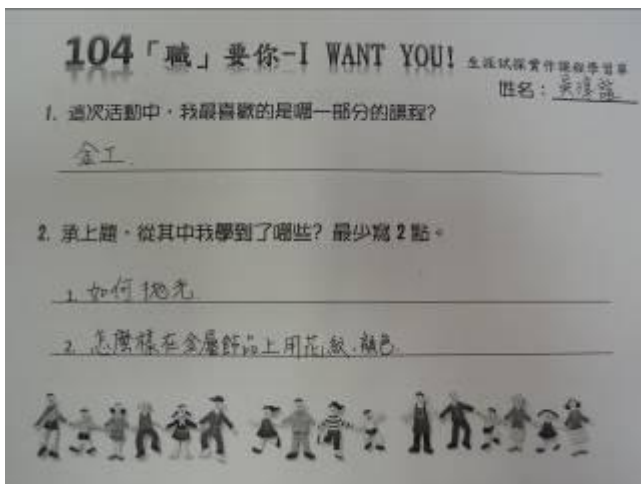 104「職」要你-I WANT YOU! 生涯試探實作課程學習單
姓名：吳
1. 這次活動中，我最喜歡的是哪一部分的課程?
金工.
2. 承上題，從其中我學到了哪些? 最少寫 2 點。
1. 如何拋光
2. 怎麼樣在金屬飾品上用花紋.顏色.